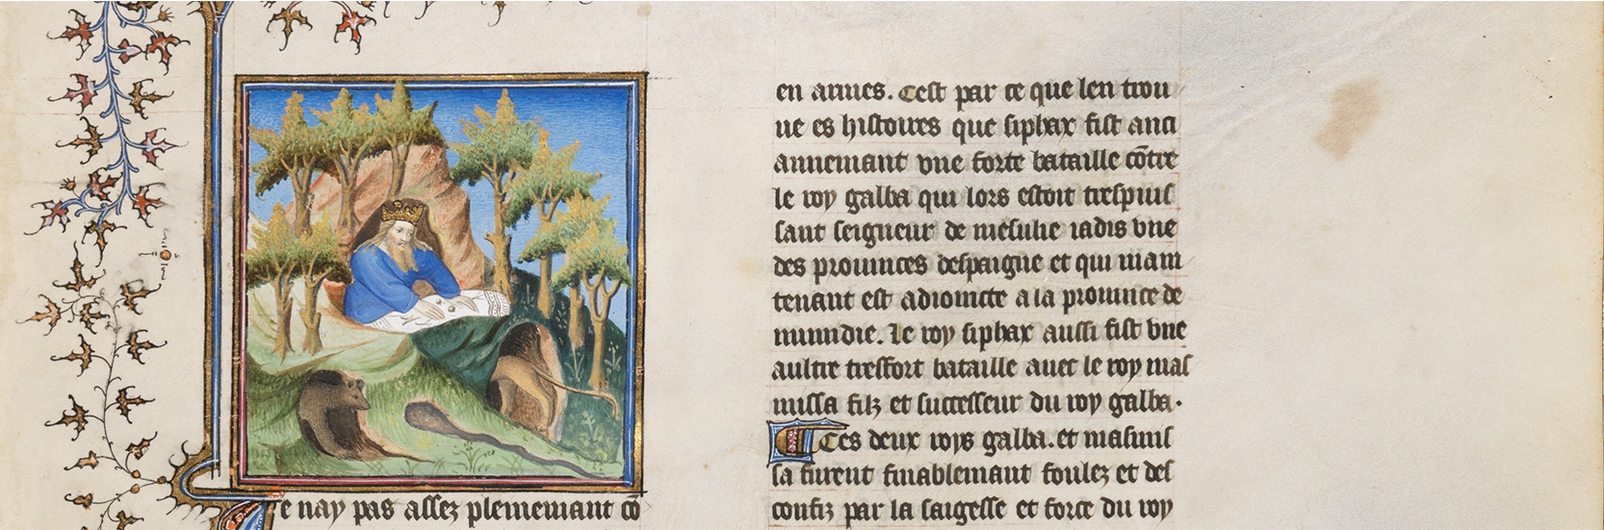 e nay pas assez plenemant cō
en armes. Cest par ce que len trou
ue es histoires que siphax fist anci
annemant vne forte bataille cōtre
le roy galba qui lors estoit trespuis
sant seigneur de mesulie iadis vne
des prouinces despaigne et qui main
tenant est adioincte a la prouince de
numidie. Le roy siphax aussi fist vne
aultre tresfort bataille auec le roy mas
missa filz et successeur du roy galba.
Ces deux roys galba. et masinis
sa furent finablemant foulez et des
confiz par la saigesse et force du roy